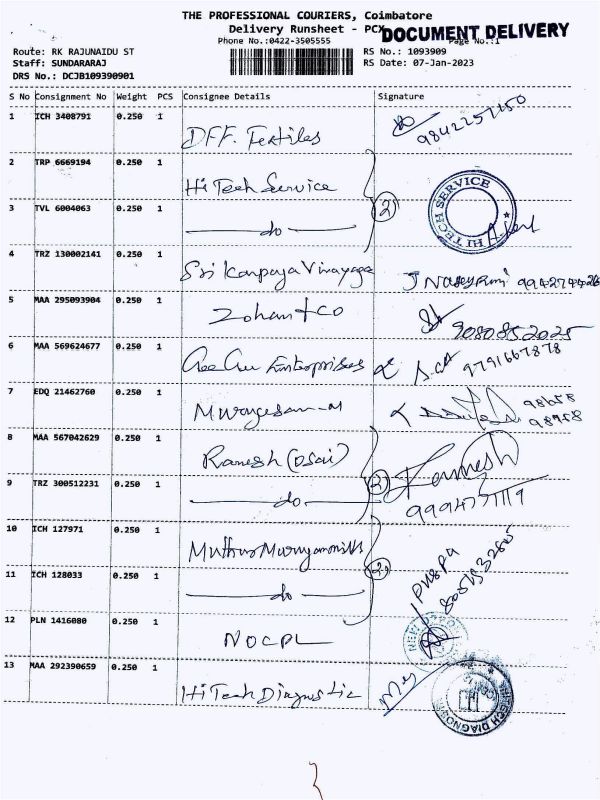 THE PROFESSIONAL COURIERS, Coimbatore
Delivery Runsheet - PCX
DOCUMENT DELIVERY
Phone No.:0422-3505555
Page No.:1
Route: RK RAJUNAIDU ST
RS No.: 1093909
Staff: SUNDARARAJ
RS Date: 07-Jan-2023
DRS No.: DCJB109390901
S No Consignment No Weight PCS Consignee Details Signature
1 ICH 3408791 0.250 1 DFF. Textiles 9842257150
2 TRP 6669194 0.250 1 Hi Tech Service
HITECH SERVICE
3 TVL 6004063 0.250 1 do 2
4 TRZ 130002141 0.250 1 Sri Karpaga Vinayaga
5 MAA 295093904 0.250 1 Zohan + CO 9080852025
6 MAA 569624677 0.250 1 Enterprises 9791667878
7 EDQ 21462760 0.250 1 Murugesan - M
8 MAA 567042629 0.250 1 Ramesh (Osai) Ramesh
9 TRZ 300512231 0.250 1 do 2
10 ICH 127971 0.250 1
11 ICH 128033 0.250 1 do 2 pushpa
12 PLN 1416080 0.250 1 NOCPL
13 MAA 292390659 0.250 1 HiTech Diagnostic
HITECH DIAGNOSTIC